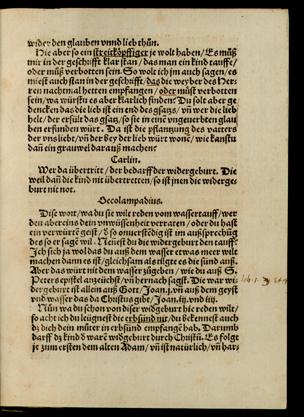 wider den glauben vnnd lieb thün.
Hie aber so ein streitköpffiger ie wolt haben/ Es müß
mir in der geschrifft klar stan/ das man ein kind tauffe/
oder müß verbotten sein. So wolt ich im auch sagen/ es
müest auch stan in der geschrifft/ das die weyber des Her
ren nachtmal hetten empfangen/ oder müst verbotten
sein/ wa würstu es aber klarlich finden? Du solt aber ge
dencken das die lieb ist ein end des gsatz/ vñ wer die lieb
helt/ der erfült das gsatz/ so sie in eine vngeuerbten glau
ben erfunden würt. Da ist die pflantzung des vatters
der vns liebt/ vñ der bey der lieb würt wonē/ wie kanstu
dañ ein grauwel darauß machen?
Carlin.
Wer da übertritt/ der bedarff der widergeburt. Die
weil dañ die kind nit übertretten/ so ist jnen die widerge
burt nit not.
Oecolampadius.
Dise wort/ wa du sie wilt reden vom wassertauff/ wer
den aber eins dein vnwissenheit verraten/ oder du hast
ein verwürte geist/ d' so onuerstēdig ist im außsprechūg
des so er sagē wil. Neñest du die widergeburt den tauff?
Ich sich ja wol das du auß dem wasser etwas mer wilt
machen dann es ist/ gleichsam als tilgte es die sünd auß.
Aber das würt nit dem wasser zügeben/ wie du auß S.
Peters epistel anzeüchst/ vñ hernach sagst. Die war wi
dergeburt ist allein auß Gott/ Joan.j. vñ auß dem geyst
vnd wasser das da Christus gibt/ Joan.iij. vnd iiij.
Nün wa du schon von diser widgeburt hie reden wilt/
so acht ich du leügnest die erbsünd nit/ du bekennest auch
dz dich dein müter in erbsünd empfangē hab. Darumb
darff dz kind d' warē widgeburt durch Christū. Es folgt
ie zum ersten dem alten Adam/ vñ ist natürlich/ vñ har-